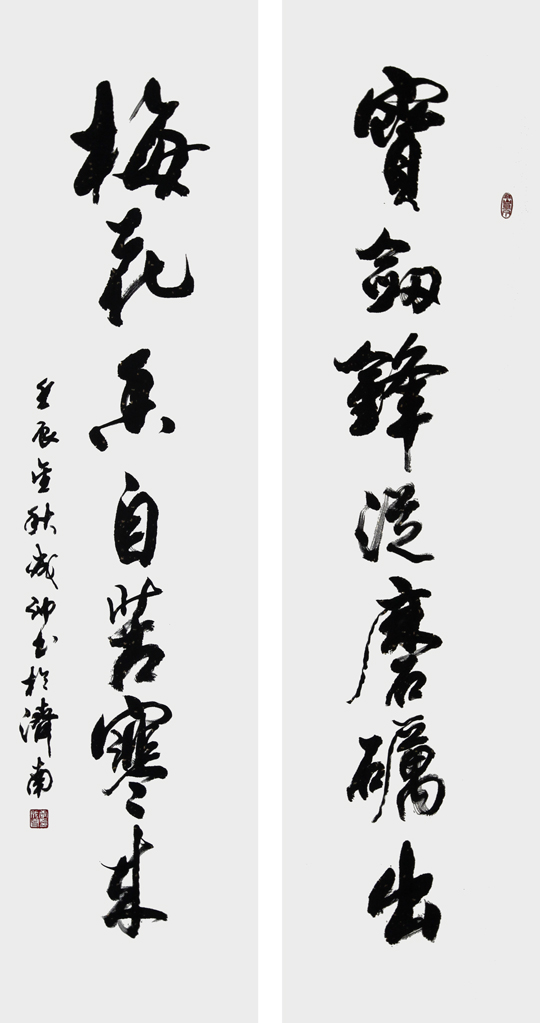 寶劍鋒從磨礪出
梅花香自苦寒來
壬辰金秋成印書於濟南